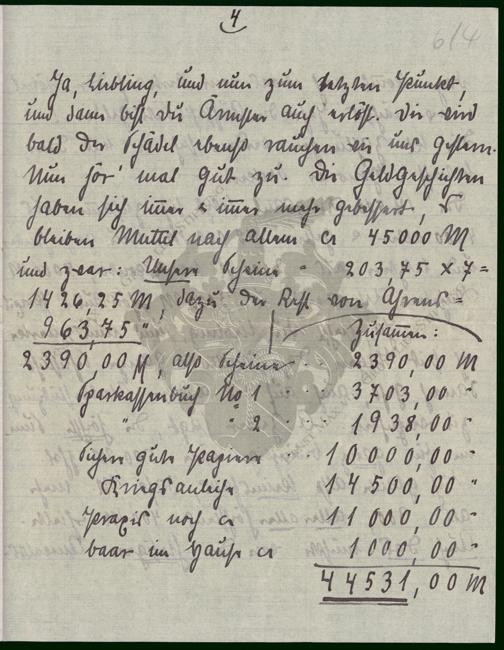 4
6/4
Ja, Liebling, und nun zum letzten Punkt,
und dann bist du Ärmster auch erlöst. Dir wird
bald der Schädel ebenso rauchen wie uns gestern.
Nun hör' mal gut zu. Die Geldgeschichten
haben sich immer & immer mehr gebessert, &
bleiben Muttel nach allem ca 45000 M
und zwar: Unsere Scheine " 203,75 x 7 =
1426,25 M, dazu der Rest von Ahrens =
963,75 "
Zusammen:
2390,00 M, also Scheine " 2390,00 M
Sparkassenbuch No 1 " " 3703,00 "
" " 2 " " 1938,00 "
Sichere gute Papiere " " 10000,00 "
Kriegsanleihe 14,500,00 "
Praxis noch ca 11000,00 "
baar im Hause ca 1000,00 "
44531,00 M